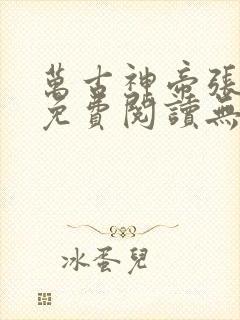 萬古神帝張
免費閱讀無
冰蛋兒